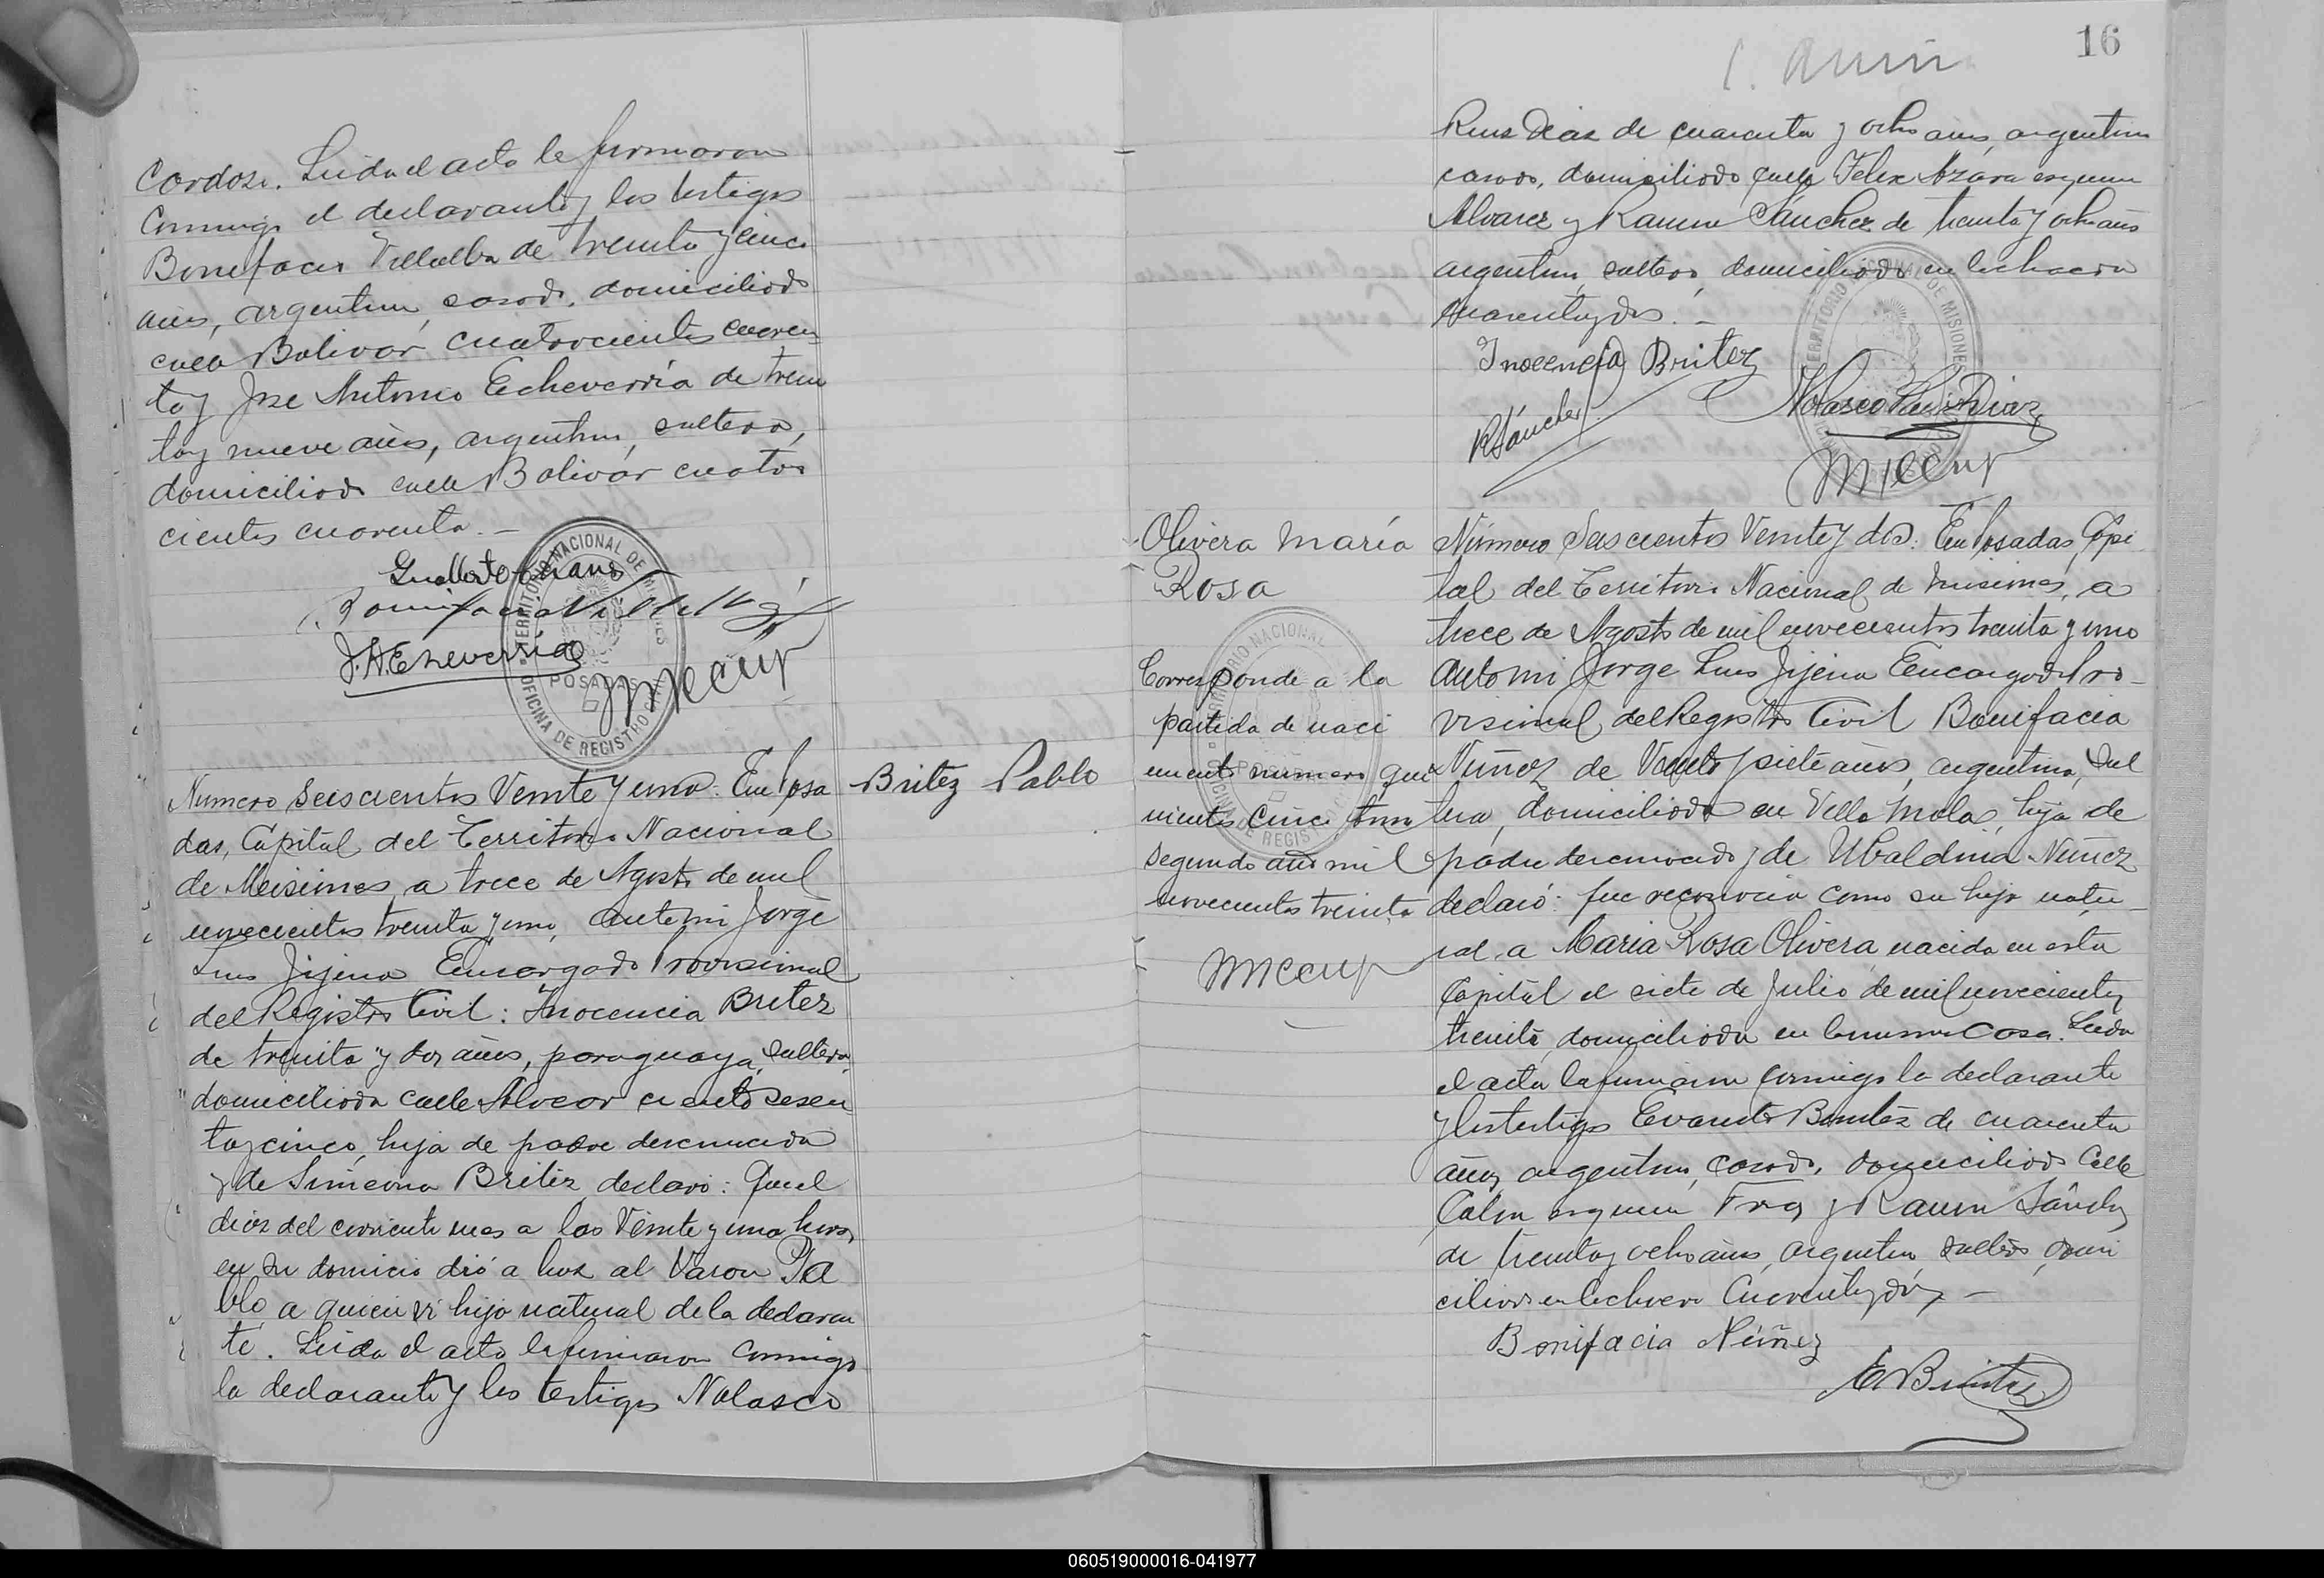 Cordoso. Leida el acta la firmaron
conmigo el declarante y los testigos
Bonifacio Villalba de treinta y cinco
años, argentino, casado, domiciliado
calle Bolivar cuatrocientos cuaren=
ta y Jose Antonio Echeverría de trein
ta y nueve años, argentino, soltero,
domiciliado calle Bolivar cuatro
cientos cuarenta.-
Bonifacio Villalba
J. A. Echeverría
TERRITORIO NACIONAL DE MISIONES
POSADAS
OFICINA DE REGISTRO CIVIL
Britez Pablo
Numero Seiscientos Veinte y uno. En Posa
das, Capital del Territorio Nacional
de Misiones, a trece de Agosto de mil
novecientos treinta y uno, ante mi Jorge
Luis Jijena Encargado Provisional
del Registro Civil: Inocencia Britez
de treinta y dos años, paraguaya, soltera,
domiciliada calle Alvear ciento sesen
ta y cinco, hija de padre desconocido
y de Simeona Britez, declaró: Que el
diez del corriente mes a las Veinte y una horas,
en su domicio dió a luz al Varon Pa
blo, a quien vi hijo natural de la declaran
te. Leida el acta la firmaron conmigo
la declarante y los testigos Nolasco
16
Ruiz Diaz de cuarenta y ocho años, argentino
casado, domiciliado calle Felix Azara esquina
Alvarez y Ramon Sánchez de treinta y ocho años
argentino, soltero, domiciliado en la chacra
cuarenta y dos.-
Inocencia Britez
R Sánchez
Nolasco Ruiz Diaz
TERRITORIO NACIONAL DE MISIONES
Olivera María
Rosa
Corresponde a la
partida de naci
miento numero qui
nientos cinco tomo
segundo año mil
novecientos treinta
Número Seiscientos Veinte y dos. En Posadas, Capi
tal del Territorio Nacional de Misiones, a
trece de Agosto de mil novecientos treinta y uno
ante mi Jorge Luis Jijena Encargado Pro-
visional del Registro Civil Bonifacia
Nuñez de Veinte y siete años, argentina, sol
tera, domiciliada en Villa Molas, hija de
padre desconocido y de Ubaldina Nuñez
declaró: que reconocia como su hija natu-
ral, a Maria Rosa Olivera, nacida en esta
Capital el siete de Julio de mil novecientos
treinta, domiciliada en la misma casa. Leida
el acta la firmaron conmigo la declarante
y los testigos Evaristo Benitez de cuarenta
años, argentino, casado, domiciliado calle
Colon esquina y Ramon Sánchez
de treinta y ocho años, argentino, soltero, domi
ciliado en la chacra cuarenta y dos -
Bonifacia Núñez
E Benitez
060519000016-041977